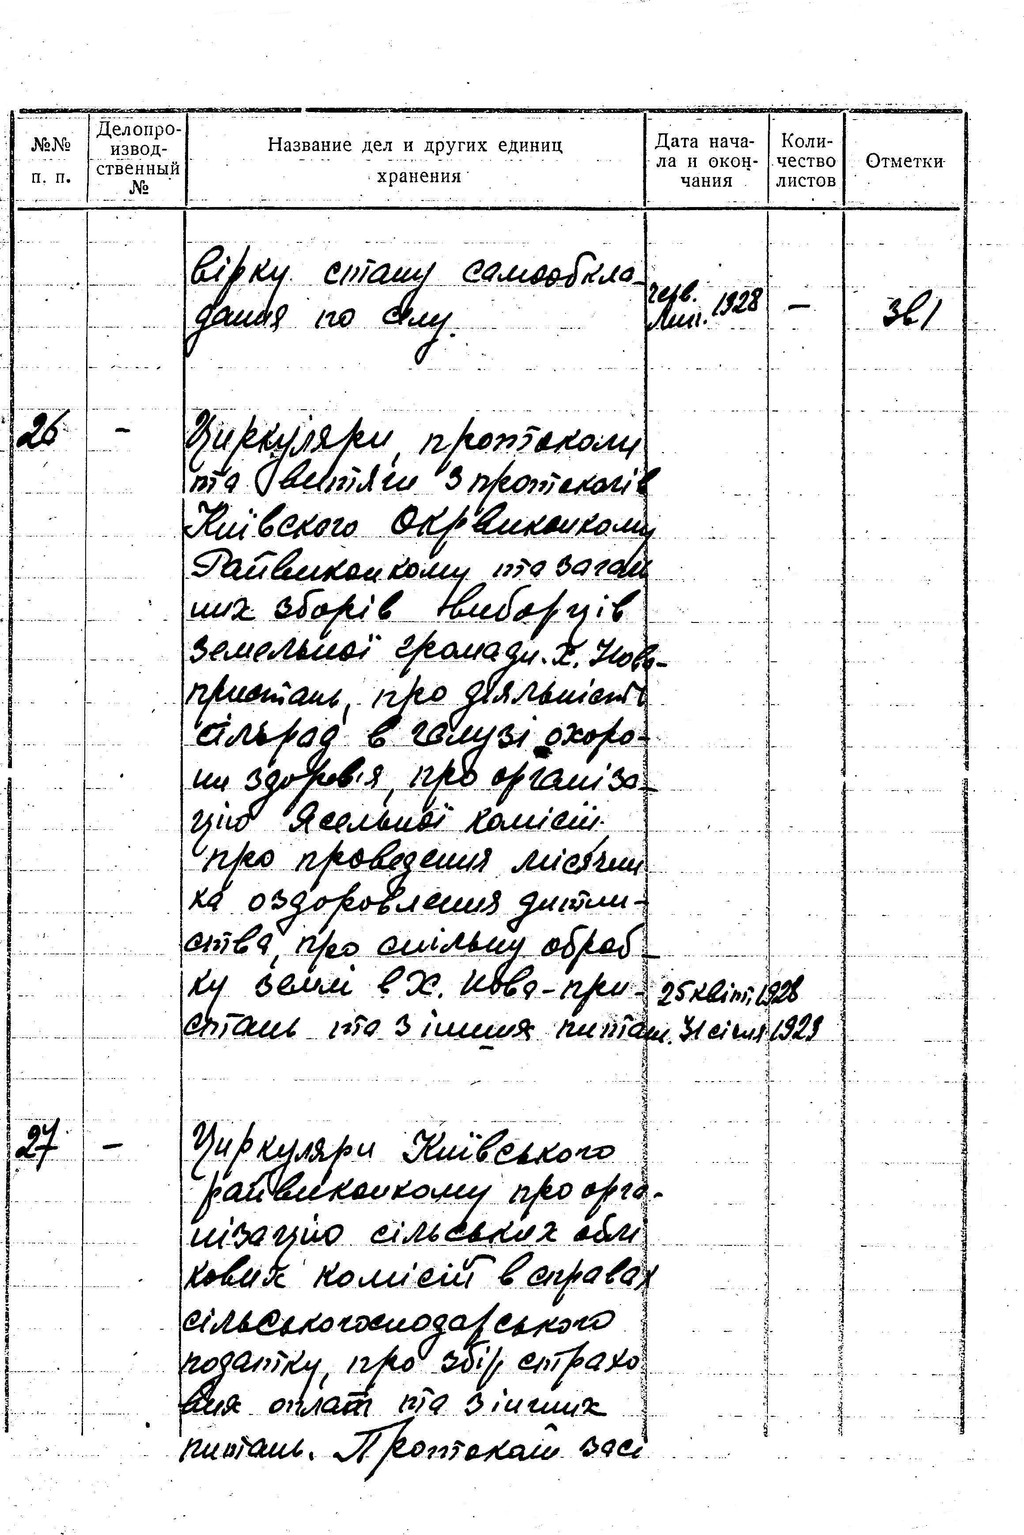 №№ п. п.
Делопро-
извод-
ственный
№
Название дел и других единиц
хранения
Дата нача-
ла и окон-
чания
Коли-
чество
листов
Отметки
вірку стану самообкла-
дання по селу.
черв.
Лип. 1928
—
26 –
Циркуляри, протоколи
та витяги з протоколів
Київского Окрвиконкому
Райвиконкому та загал
них зборів виборців
земельної громади. х. Нова-
пристань, про діяльність
сільрад в галузі охоро-
ни здоров'я, про організа-
цію Ясельної комісії,
про проведення місячни
ка оздоровлення дитин-
ства, про спільну оброб-
ку землі в х. Нова-при-
стань та з інших питань.
25 квіт. 1928
31 січня 1929
27 –
Циркуляри Київського
райвиконкому про орга-
нізацію сільських облі
кових комісій в справах
сільськогосподарського
податку, про збір страхо
вих оплат та з інших
питань. Протоколи засі